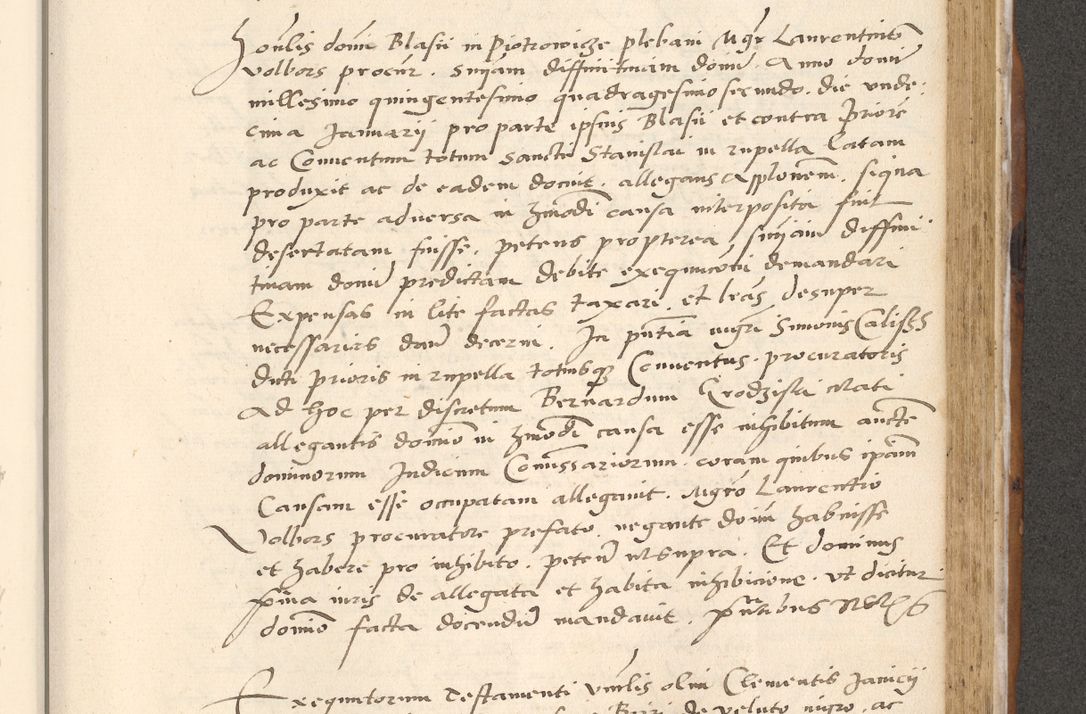 Honlis domi Blasii in Piotrowicze plebani Mgr Laurentius
Volbors procur. Snÿam diffinitiuam domi. Anno domi
millesimo quingentesimo quadragesimo secundo. die unde
cima Januarÿ pro parte ipsius Blasii et contra Priore
ac Conuentum totum Sancti Stanislai in rupella latam
produxit ac de eadem docuit. allegans applonem. si qua
pro parte aduersa in hmodi causa interposita fuit
desertatam fuisse. petens propterea, snÿam diffini
tiuam domi predictam debite exequucioni demandari
Expensas in lite factas taxari et lras desuper
necessarias dari decerni. In pntia mgri Simonis Calissz
dicti prioris in rupella totiusque Conuentus. procuratoris
Ad hoc per discretum Bernardum Grodziski citati
allegantis domino in hmodi causa esse inhibitum aucte
dominorum Judicum Comissariorum. coram quibus ipam
Causam esse occupatam allegauit. Mgro Laurentio
Volbors procuratore prefato. negante domi habuisse
et habere pro inhibito. peten ut supra. Et dominus
pma iuris de allegata et habita inhibicione. ut dicitur
domino facta docendum mandauit. pntibus
Exequutorum Testamenti vnlis olim Clementis Janicÿ
de veluto nigro. ac